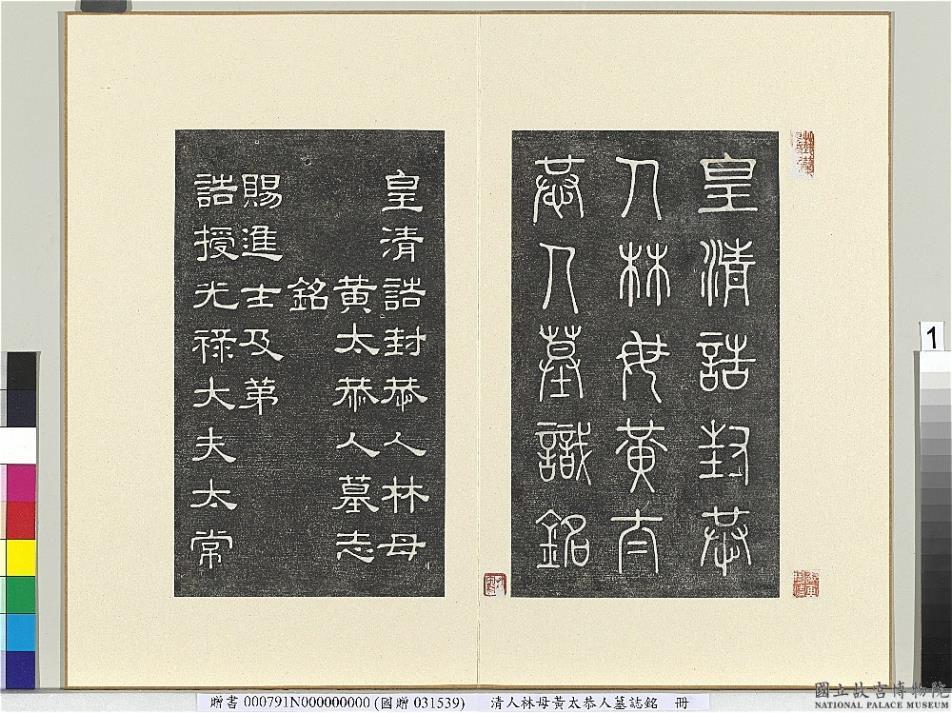 皇清誥封恭
人林母黃太
恭人墓識銘
皇清誥封恭人林母
黃太恭人墓志
銘
賜進士及弟
誥授光祿大夫太常
1
贈書 000791N000000000 (國贈 031539) 清人林母黃太恭人墓誌銘 冊
國立故宮博物院
NATIONAL PALACE MUSEUM